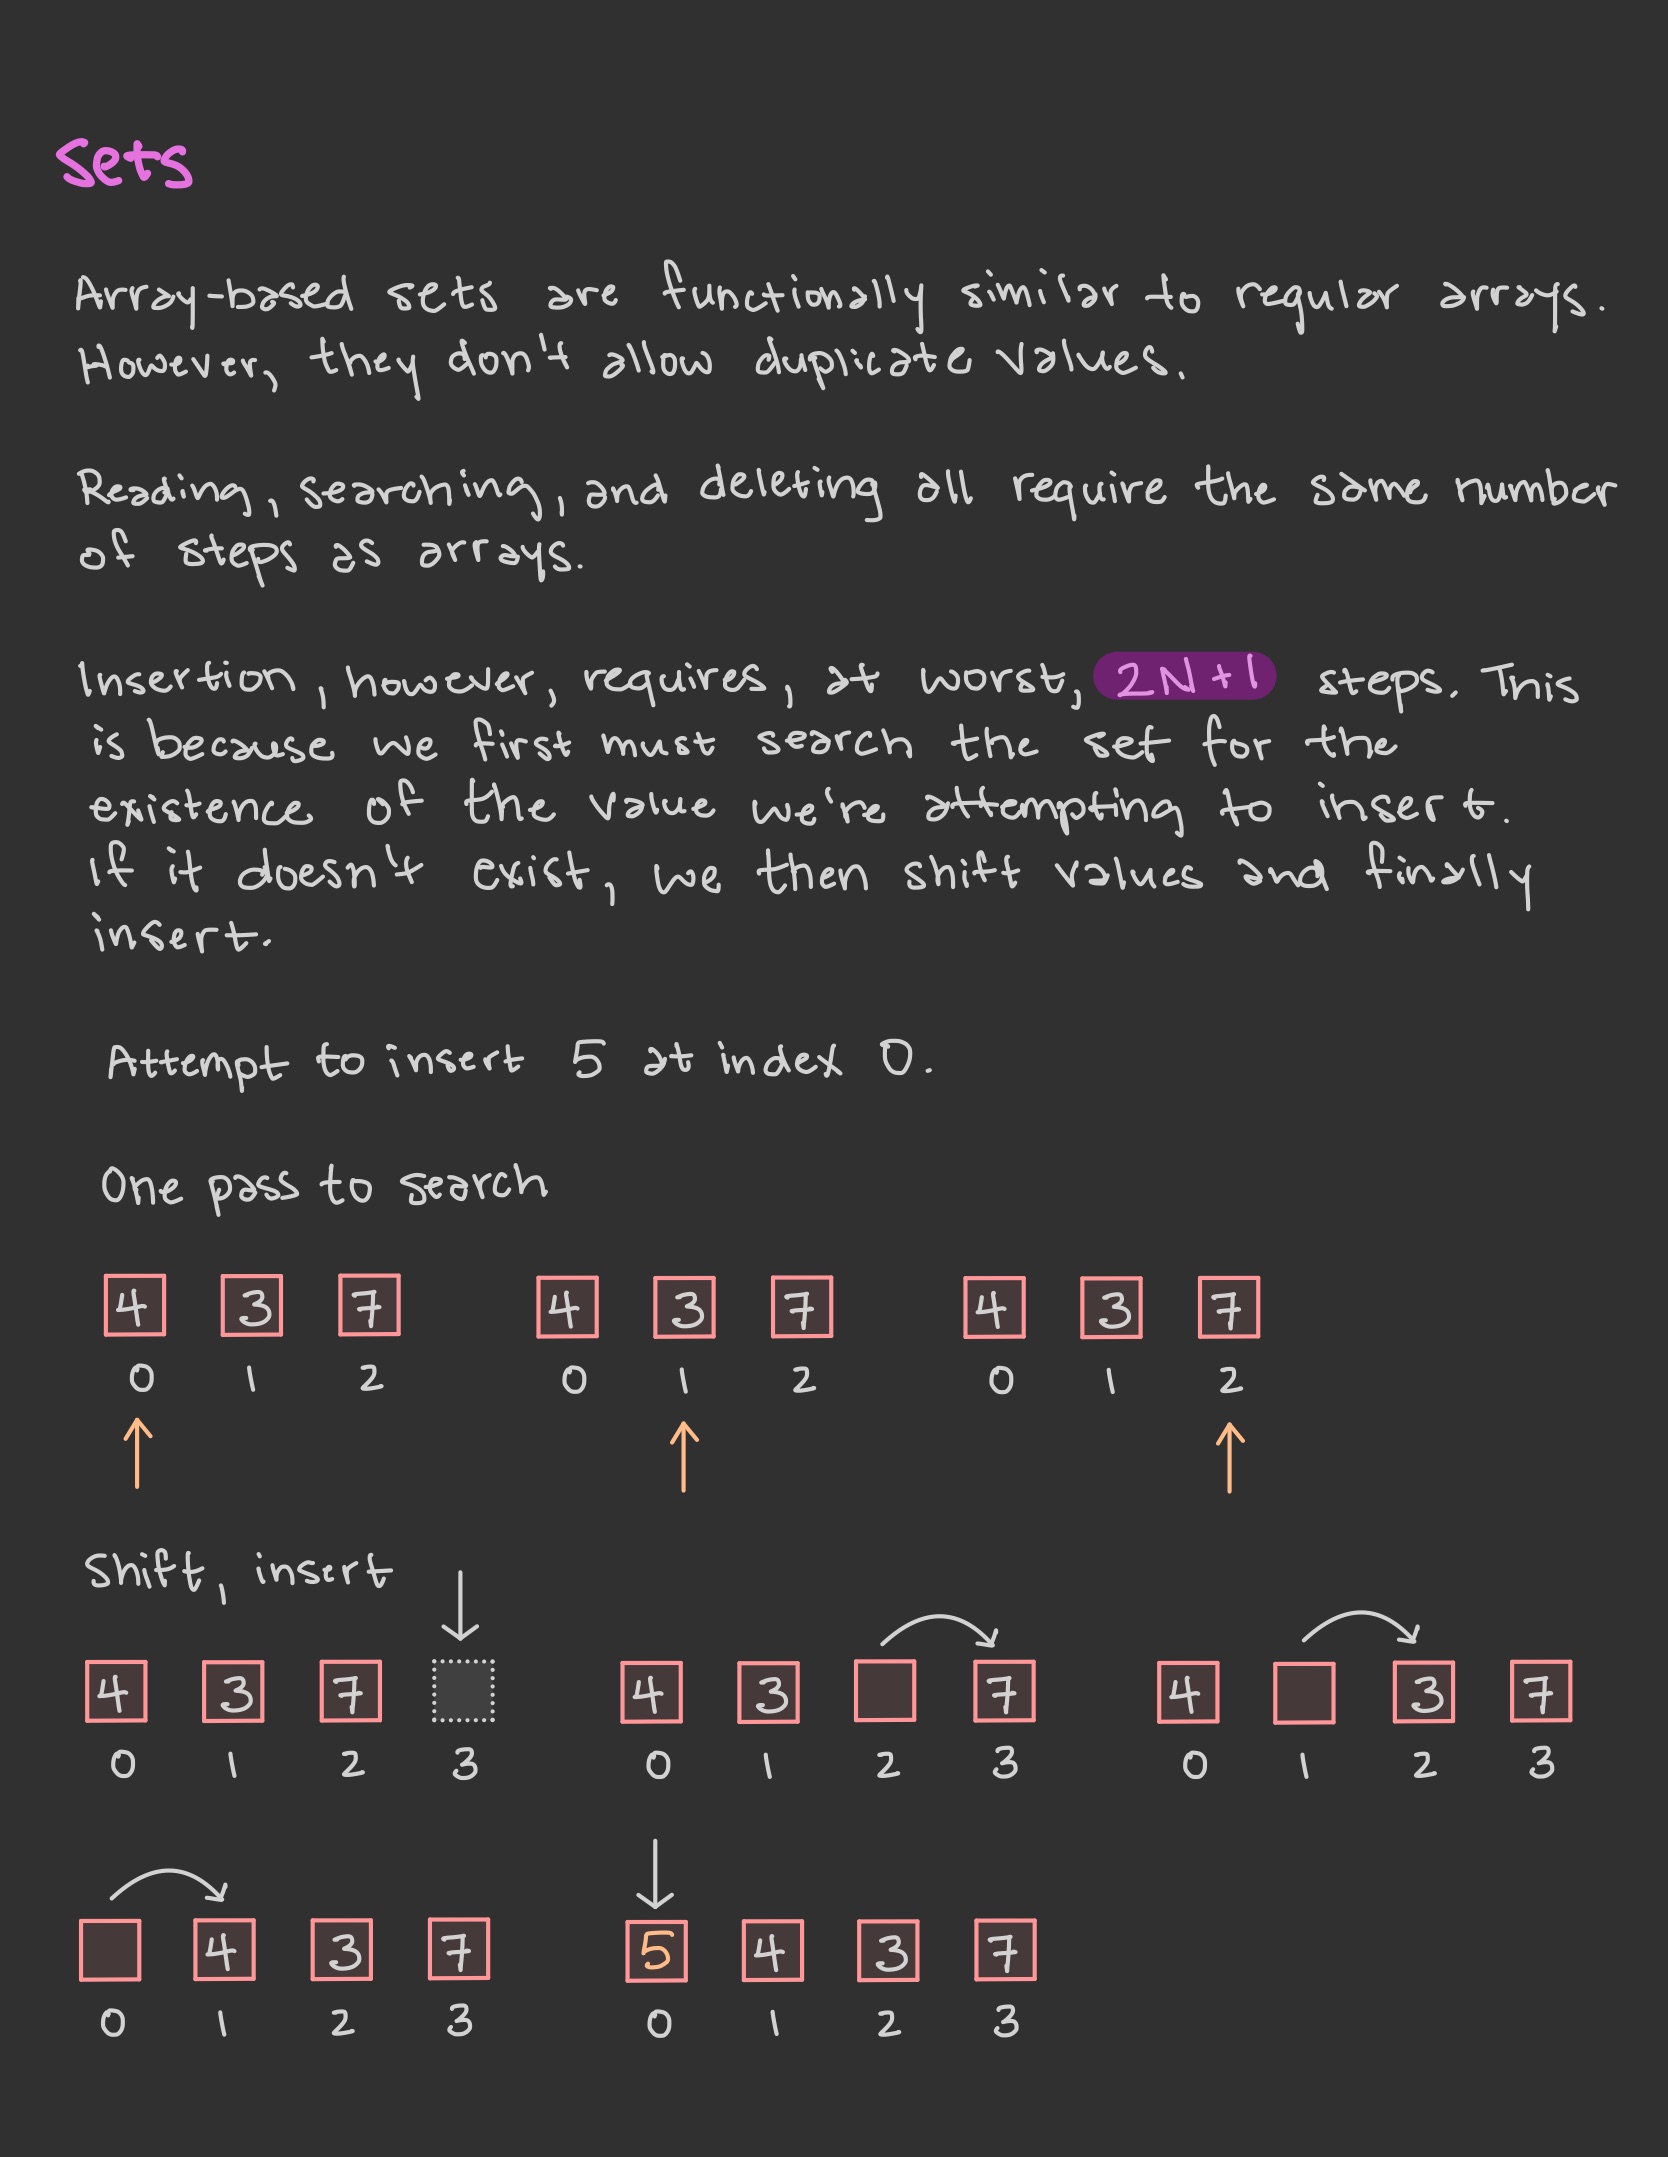 Sets
Array-based sets are functionally similar to regular arrays.
However, they don't allow duplicate values.
Reading, searching, and deleting all require the same number
of steps as arrays.
Insertion, however, requires, at worst, 2N+1 steps. This
is because we first must search the set for the
existence of the value we're attempting to insert.
If it doesn't exist, we then shift values and finally
insert.
Attempt to insert 5 at index 0.
One pass to search
4 3 7 4 3 7 4 3 7
0 1 2 0 1 2 0 1 2
Shift, insert
4 3 7 4 3 7 4 3 7
0 1 2 3 0 1 2 3 0 1 2 3
4 3 7 5 4 3 7
0 1 2 3 0 1 2 3